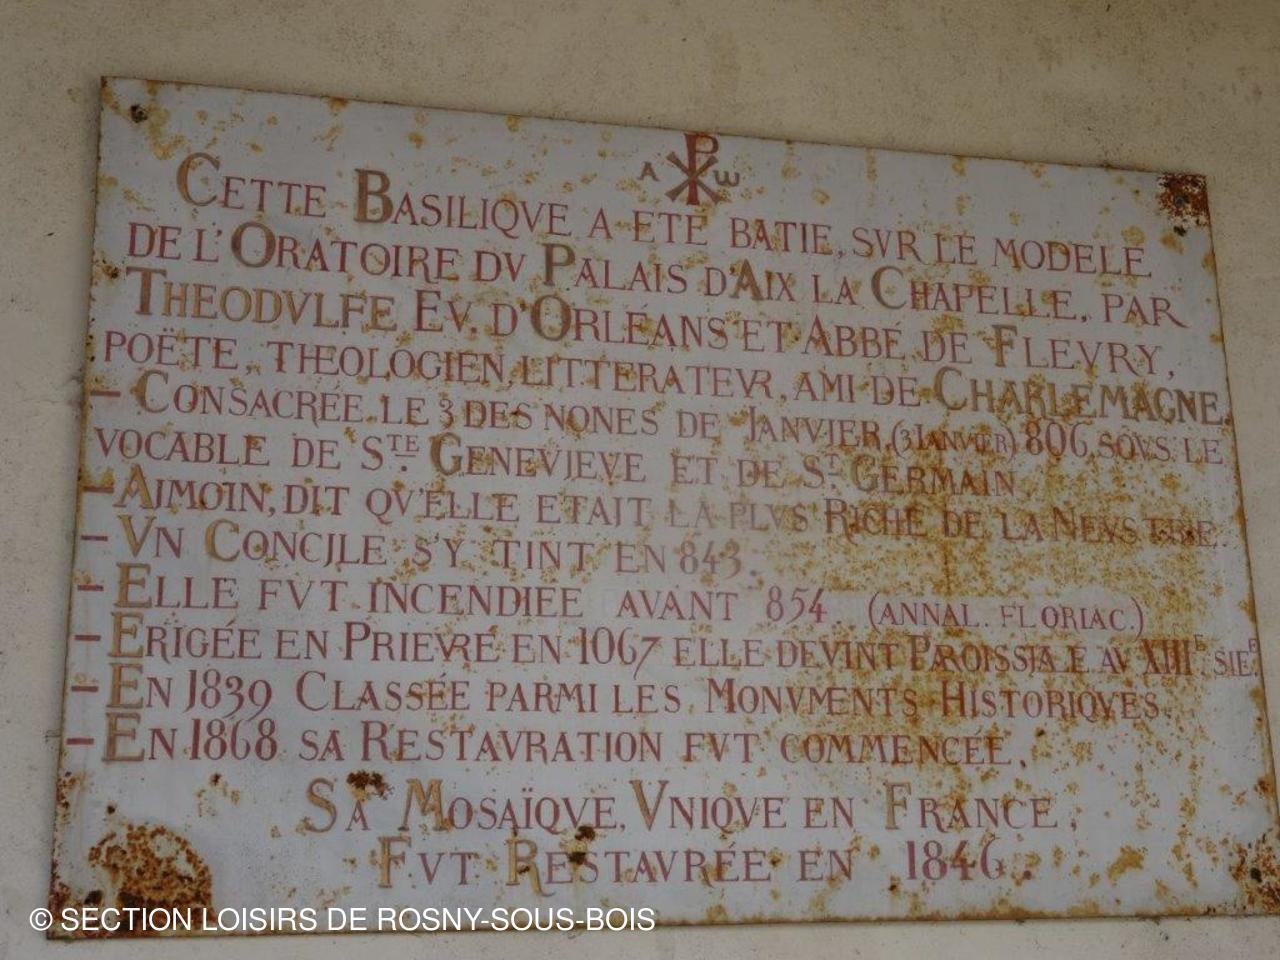 A ⳩ ω
CETTE BASILIQVE A ETÉ BATIE, SVR LE MODELE
DE L'ORATOIRE DV PALAIS D'AIX LA CHAPELLE, PAR
THEODVLFE EV. D'ORLÉANS ET ABBÉ DE FLEVRY,
POËTE, THEOLOGIEN, LITTERATEVR, AMI DE CHARLEMAGNE.
– CONSACRÉE LE 3 DES NONES DE JANVJER, (3 JANVIER) 806, SOVS LE
VOCABLE DE STE GENEVJEVE ET DE ST GERMAIN.
– AJMOIN, DIT QV'ELLE ETAJT LA PLVS RICHE DE LA NEVSTRIE.
– VN CONCJLE S'Y TINT EN 843.
– ELLE FVT INCENDIEE AVANT 854. (ANNAL. FLORIAC.)
– ERIGÉE EN PRIEVRÉ EN 1067 ELLE DEVINT PAROISSJALE AV XIIIE. SIE.
– EN 1839 CLASSÉE PARMI LES MONVMENTS HISTORIQVES.
– EN 1868 SA RESTAVRATION FVT COMMENCÉE.
SA MOSAÏQVE, VNIQVE EN FRANCE,
FVT RESTAVRÉE EN 1846.
© SECTION LOISIRS DE ROSNY-SOUS-BOIS